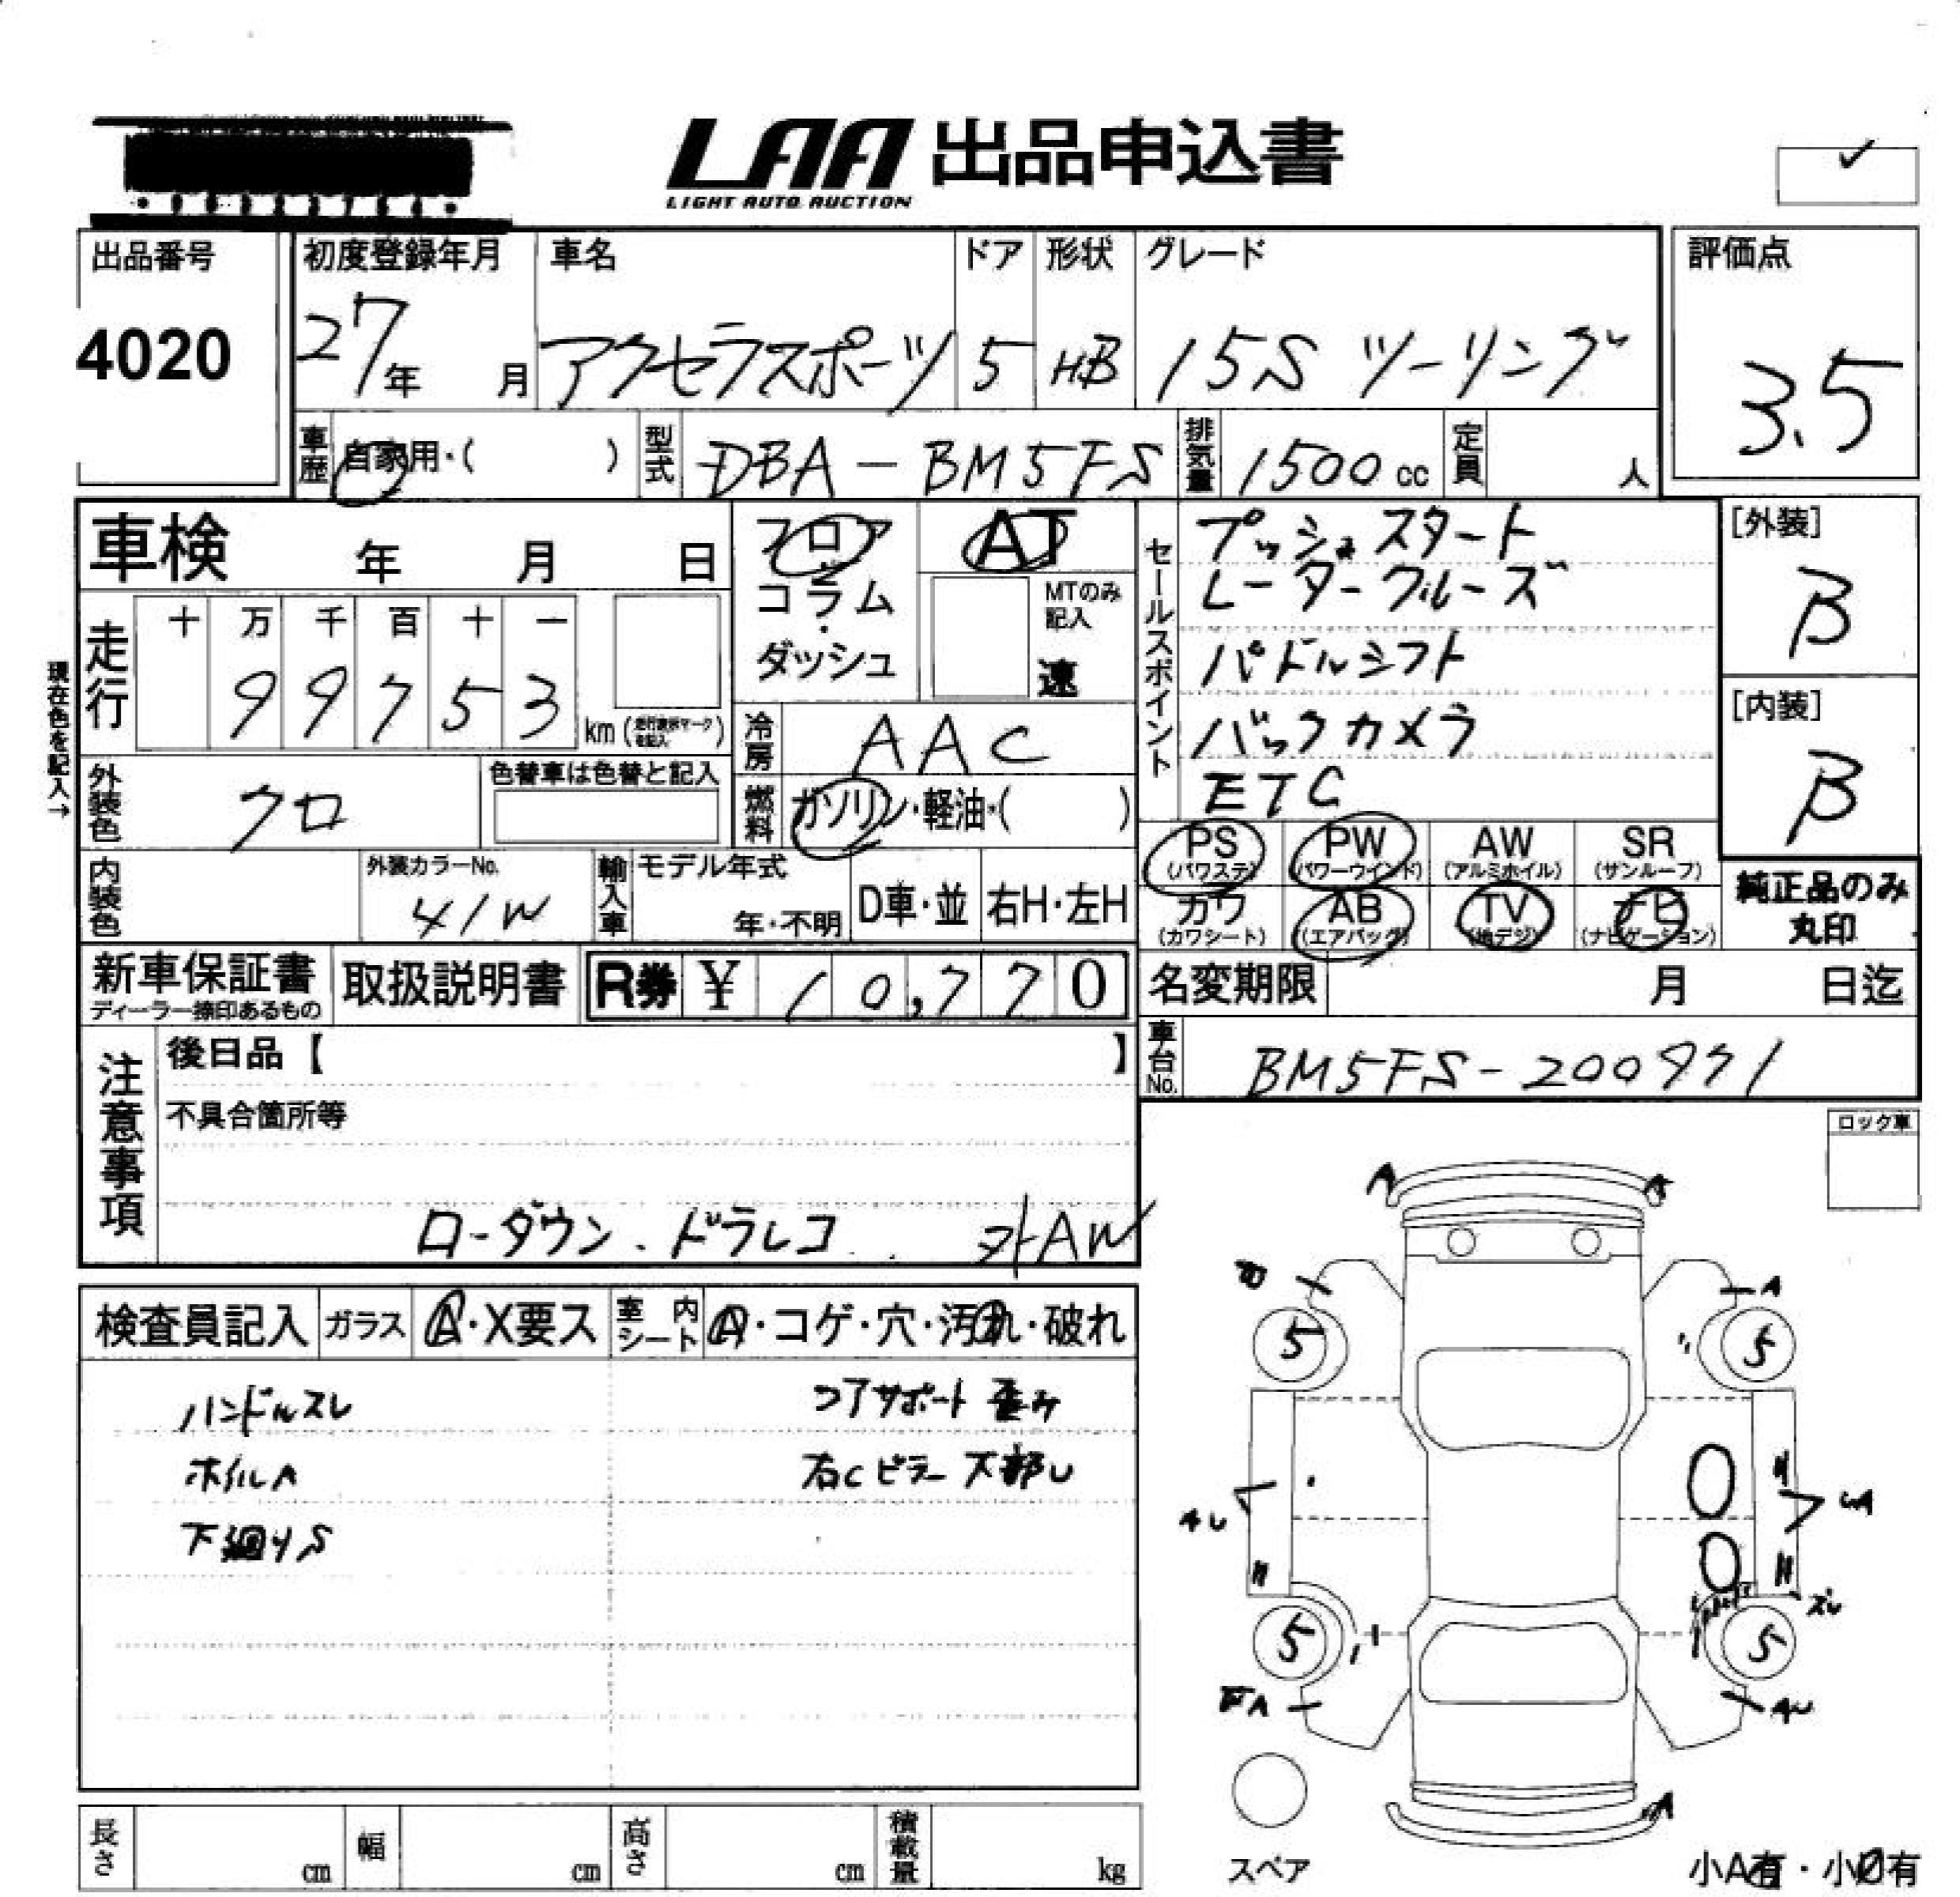 LAA 出品申込書
LIGHT AUTO AUCTION
✓
出品番号
4020
初度登録年月
27年 月
車名
アクセラスポーツ
ドア
5
形状
HB
グレード
15S ツーリング
評価点
3.5
車歴 自家用・( )
型式 DBA-BM5FS
排気量 1500cc
定員 人
車検 年 月 日
フロア
コラム
・
ダッシュ
AT
MTのみ記入
速
セールスポイント
プッシュスタート
レーダークルーズ
パドルシフト
バックカメラ
ETC
[外装]
B
[内装]
B
現在色を記入→
走行
十 万 千 百 十 一
9 9 7 5 3 km
冷房 AAC
外装色 クロ
色替車は色替と記入
燃料 ガソリン・軽油・( )
内装色
外装カラーNo.
41W
輸入車
モデル年式
年・不明
D車・並
右H・左H
PS (パワステ)
PW (パワーウインド)
AW (アルミホイル)
SR (サンルーフ)
カワ (カワシート)
AB (エアバッグ)
TV (地デジ)
ナビ (ナビゲーション)
純正品のみ
丸印
新車保証書
ディーラー捺印あるもの
取扱説明書
R券 ¥ 10,770
名変期限 月 日迄
車台No. BM5FS-200971
注意事項
後日品【 】
不具合箇所等
ローダウン.ドラレコ 外AW
ロック車
検査員記入
ガラス A・X要ス
室内シート A・コゲ・穴・汚れ・破れ
ハンドルスレ
ホイルA
下廻りS
コアサポート歪み
右Cピラー下部U
A
A
A
5
5
4U
ズレ
5
5
A
AU
A
スペア
小A有・小U有
長さ cm
幅 cm
高さ cm
積載量 kg